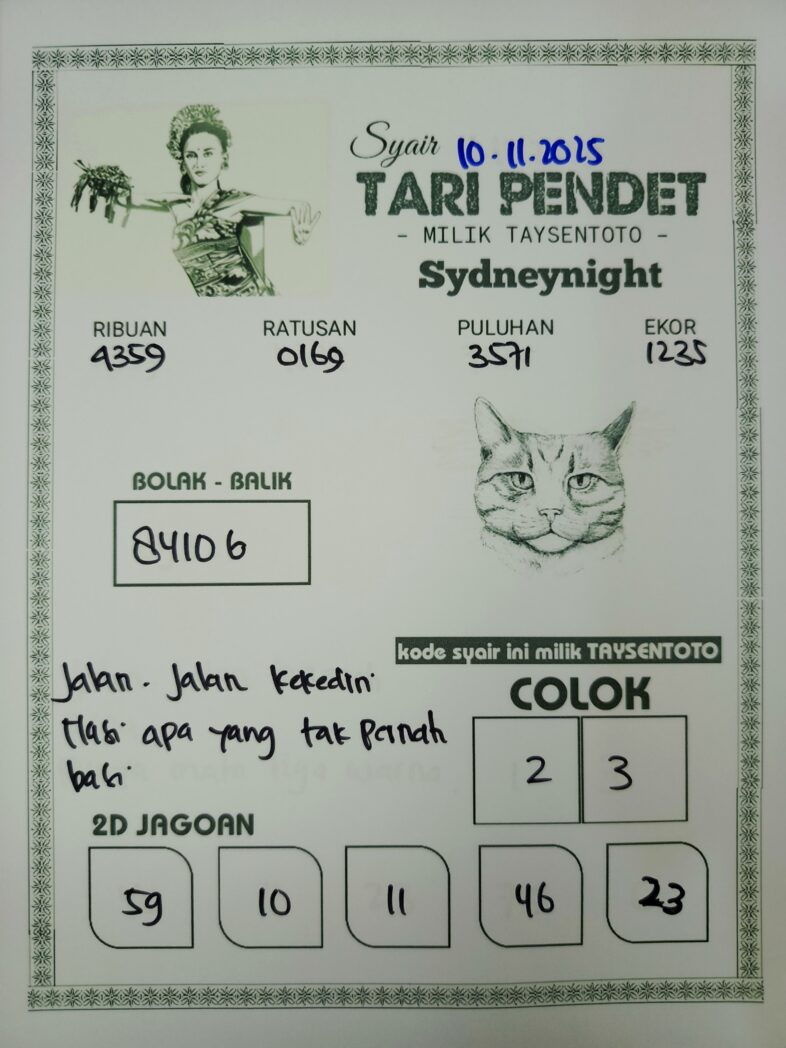 Syair 10.11.2025
TARI PENDET
- MILIK TAYSENTOTO -
Sydneynight
RIBUAN RATUSAN PULUHAN EKOR
4359 0169 3571 1235
BOLAK - BALIK
84106
kode syair ini milik TAYSENTOTO
Jalan - Jalan kekediri
Nasi apa yang tak pernah
basi
COLOK
2 3
2D JAGOAN
59 10 11 46 23